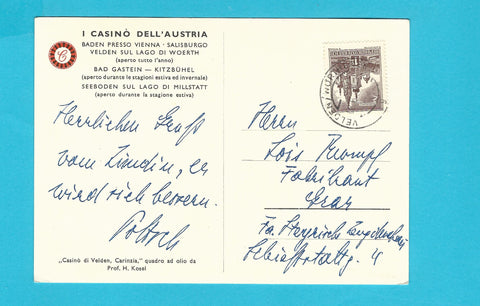 I CASINÒ DELL'AUSTRIA
BADEN PRESSO VIENNA · SALISBURGO
VELDEN SUL LAGO DI WOERTH
(aperto tutto l'anno)
BAD GASTEIN — KITZBÜHEL
(aperto durante le stagioni estiva ed invernale)
SEEBODEN SUL LAGO DI MILLSTATT
(aperto durante la stagione estiva)
Herrlichen Gruß
vom
wird sich bessern.
„Casinò di Velden, Carinzia,” quadro ad olio da
Prof. H. Kosel
VELDEN
Herrn
Lois
Fabrikant
Graz
Fa. Steyrisch
4